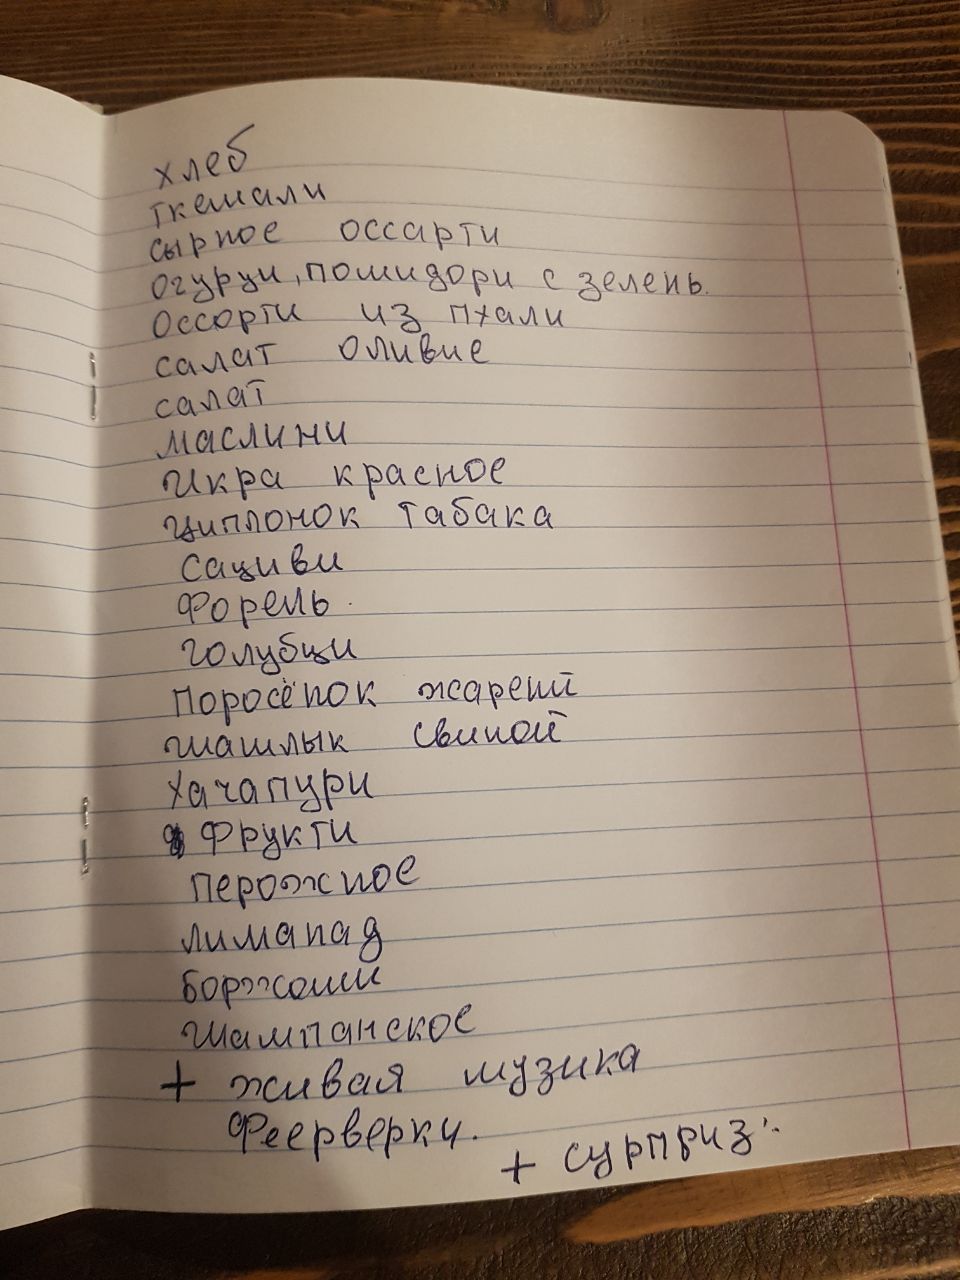 хлеб
ткемали
сырное оссарти
огурци, помидори с зелень.
оссорти из пхали
салат оливие
салат
маслини
икра красное
циплонок табака
сациви
форель.
голубци
поросёнок жарений
шашлык свиной
хачапури
фрукти
перожное
лиманад
боржоми
шампанское
+ живая музика
феерверки.
+ сурприз